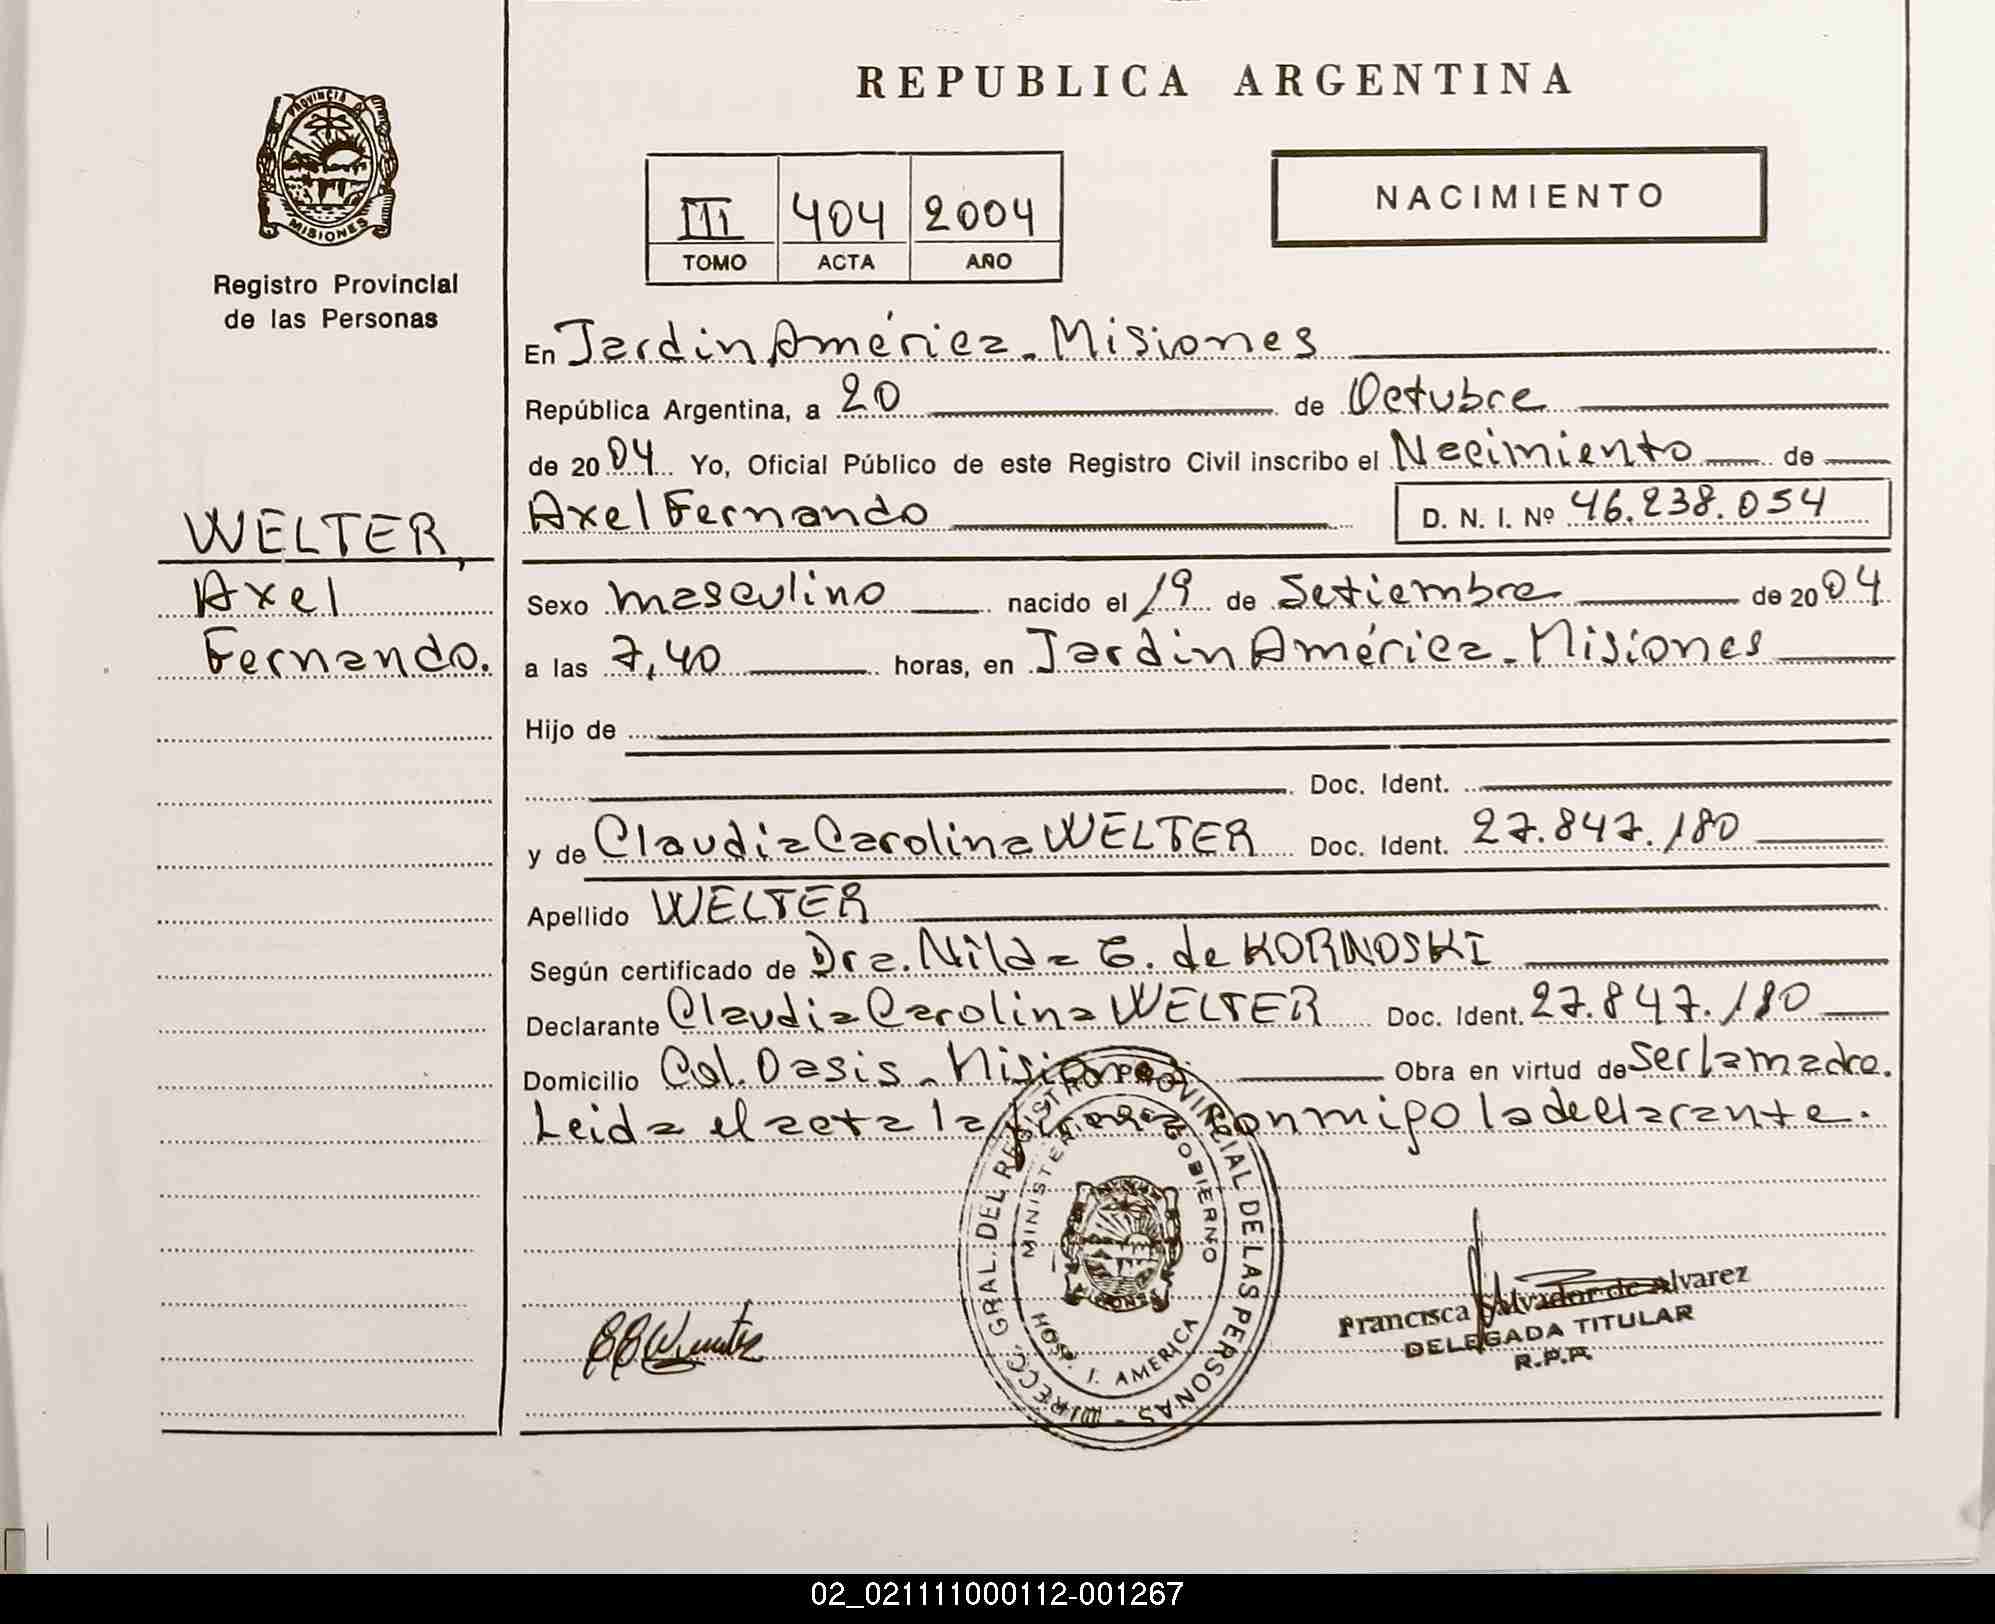 REPUBLICA ARGENTINA
PROVINCIA DE MISIONES
Registro Provincial
de las Personas
III 404 2004
TOMO ACTA AÑO
NACIMIENTO
WELTER,
Axel
Fernando.
En Jardin América - Misiones
República Argentina, a 20 de Octubre
de 2004 Yo, Oficial Público de este Registro Civil inscribo el Nacimiento de
Axel Fernando D. N. I. Nº 46.238.054
Sexo masculino nacido el 19 de Setiembre de 2004
a las 7,40 horas, en Jardin América - Misiones
Hijo de
Doc. Ident.
y de Claudia Carolina WELTER Doc. Ident. 27.847.180
Apellido WELTER
Según certificado de Dra. Nilda E. de KORNOSKI
Declarante Claudia Carolina WELTER Doc. Ident. 27.847.180
Domicilio Col. Oasis - Misiones Obra en virtud de ser la madre.
Leida el acta la firma conmigo la declarante.
DIRECC. GRAL. DEL REGISTRO PROVINCIAL DE LAS PERSONAS
MINISTERIO GOBIERNO
HOSP. J. AMERICA
Francisca Salvador de Alvarez
DELEGADA TITULAR
R.P.P.
02_021111000112-001267